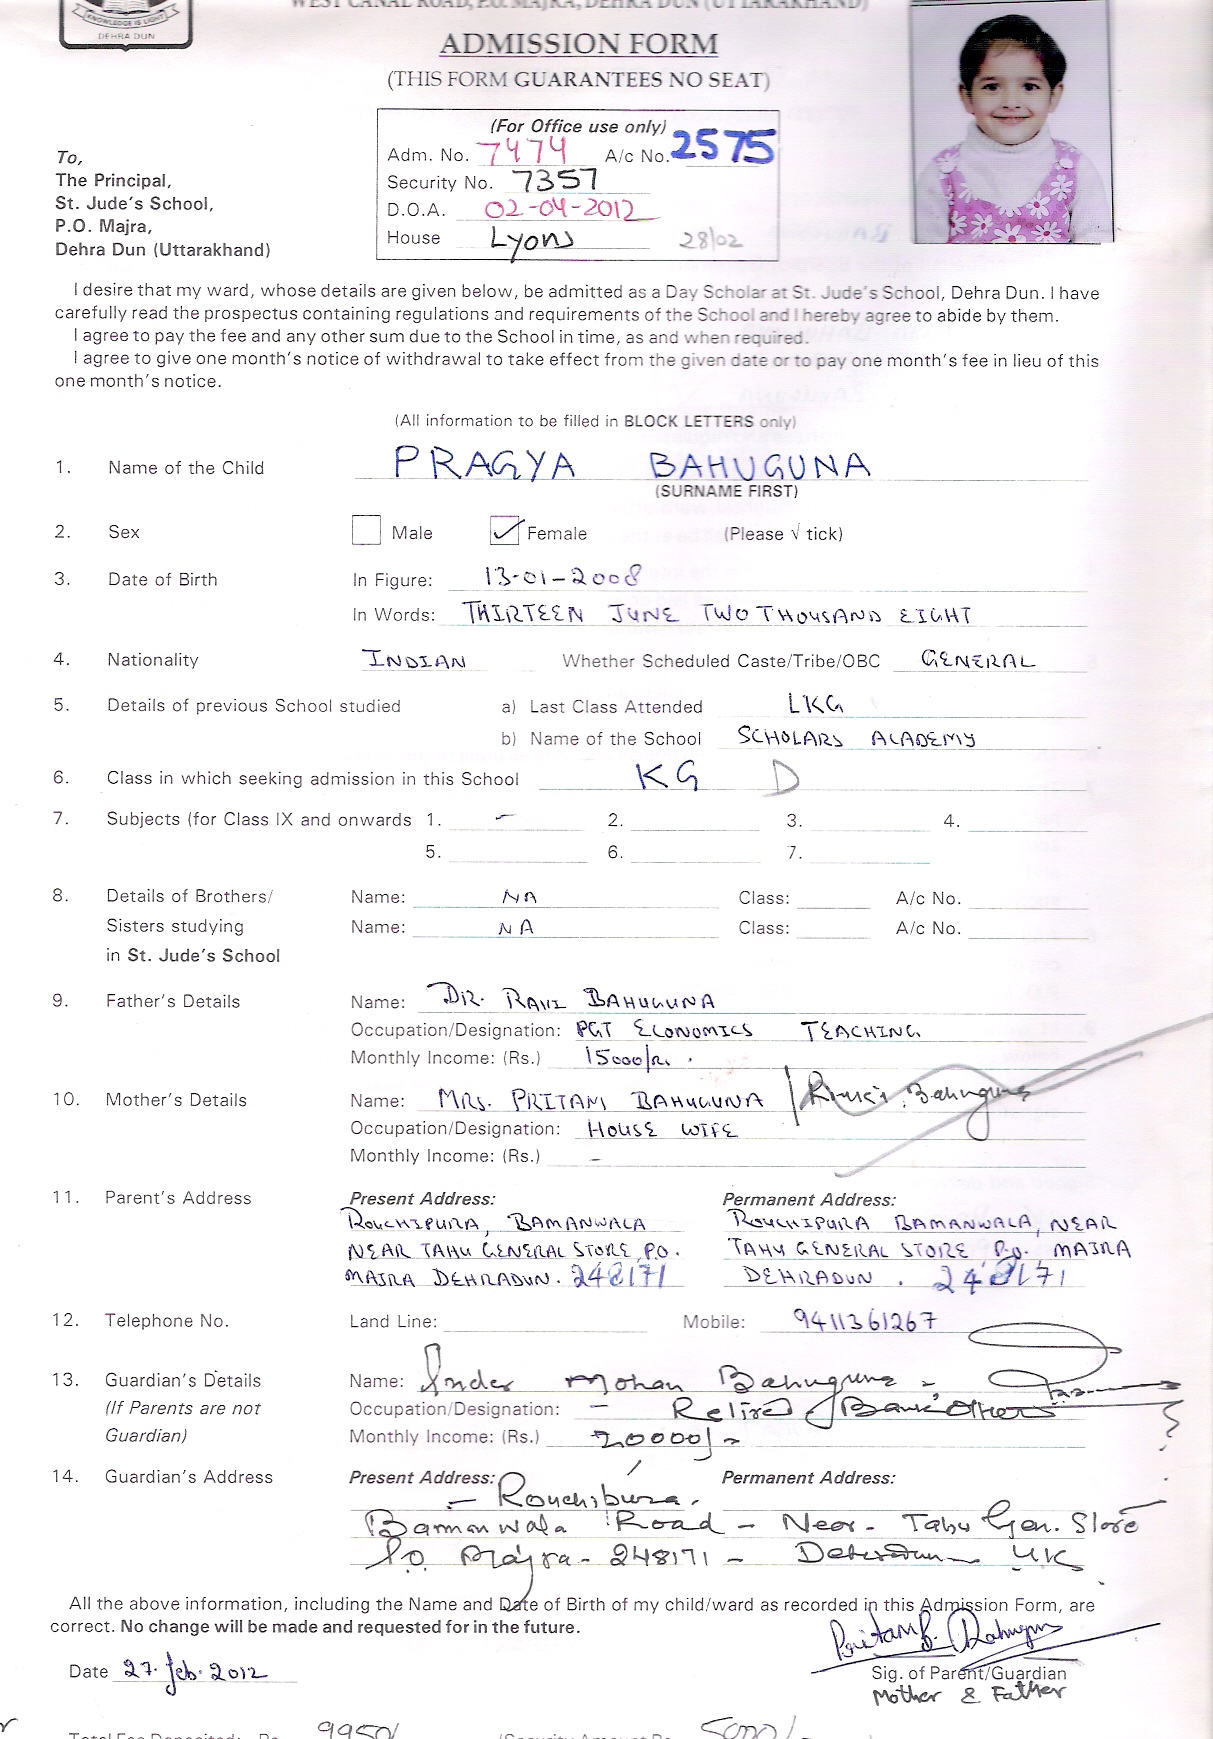 KNOWLEDGE IS LIGHT
DEHRA DUN
WEST CANAL ROAD, P.O. MAJRA, DEHRA DUN (UTTARAKHAND)
ADMISSION FORM
(THIS FORM GUARANTEES NO SEAT)
(For Office use only)
Adm. No. 7474 A/c No. 2575
Security No. 7357
D.O.A. 02-04-2012
House Lyons 28/02
To,
The Principal,
St. Jude's School,
P.O. Majra,
Dehra Dun (Uttarakhand)
I desire that my ward, whose details are given below, be admitted as a Day Scholar at St. Jude's School, Dehra Dun. I have
carefully read the prospectus containing regulations and requirements of the School and I hereby agree to abide by them.
I agree to pay the fee and any other sum due to the School in time, as and when required.
I agree to give one month's notice of withdrawal to take effect from the given date or to pay one month's fee in lieu of this
one month's notice.
(All information to be filled in BLOCK LETTERS only)
1. Name of the Child PRAGYA BAHUGUNA
(SURNAME FIRST)
2. Sex Male Female (Please √ tick)
3. Date of Birth In Figure: 13-01-2008
In Words: THIRTEEN JUNE TWO THOUSAND EIGHT
4. Nationality INDIAN Whether Scheduled Caste/Tribe/OBC GENERAL
5. Details of previous School studied a) Last Class Attended LKG
b) Name of the School SCHOLARS ACADEMY
6. Class in which seeking admission in this School KG D
7. Subjects (for Class IX and onwards 1. - 2. 3. 4.
5. 6. 7.
8. Details of Brothers/ Name: NA Class: A/c No.
Sisters studying Name: NA Class: A/c No.
in St. Jude's School
9. Father's Details Name: DR. RAVI BAHUGUNA
Occupation/Designation: PGT ECONOMICS TEACHING
Monthly Income: (Rs.) 15000/-
10. Mother's Details Name: MRS. PRITAM BAHUGUNA
Occupation/Designation: HOUSE WIFE
Monthly Income: (Rs.) -
11. Parent's Address Present Address: Permanent Address:
ROUCHIPURA, BAMANWALA ROUCHIPURA BAMANWALA, NEAR
NEAR TAHU GENERAL STORE P.O. TAHU GENERAL STORE P.O. MAJRA
MAJRA DEHRADUN. 248171 DEHRADUN. 248171
12. Telephone No. Land Line: Mobile: 9411361267
13. Guardian's Details Name: Inder Mohan Bahuguna
(If Parents are not Occupation/Designation: - Retired Bank Officer
Guardian) Monthly Income: (Rs.) 20000/-
14. Guardian's Address Present Address: Permanent Address:
- Rouchipura.
Bamanwala Road - Near - Tahu Gen. Store
P.O Majra - 248171 - Dehradun UK
All the above information, including the Name and Date of Birth of my child/ward as recorded in this Admission Form, are
correct. No change will be made and requested for in the future.
Pritam B. Bahuguna
Date 27. feb. 2012 Sig. of Parent/Guardian
Mother & Father
Total Fee Deposited: Rs. 9950/ (Security Amount Rs. 5000/